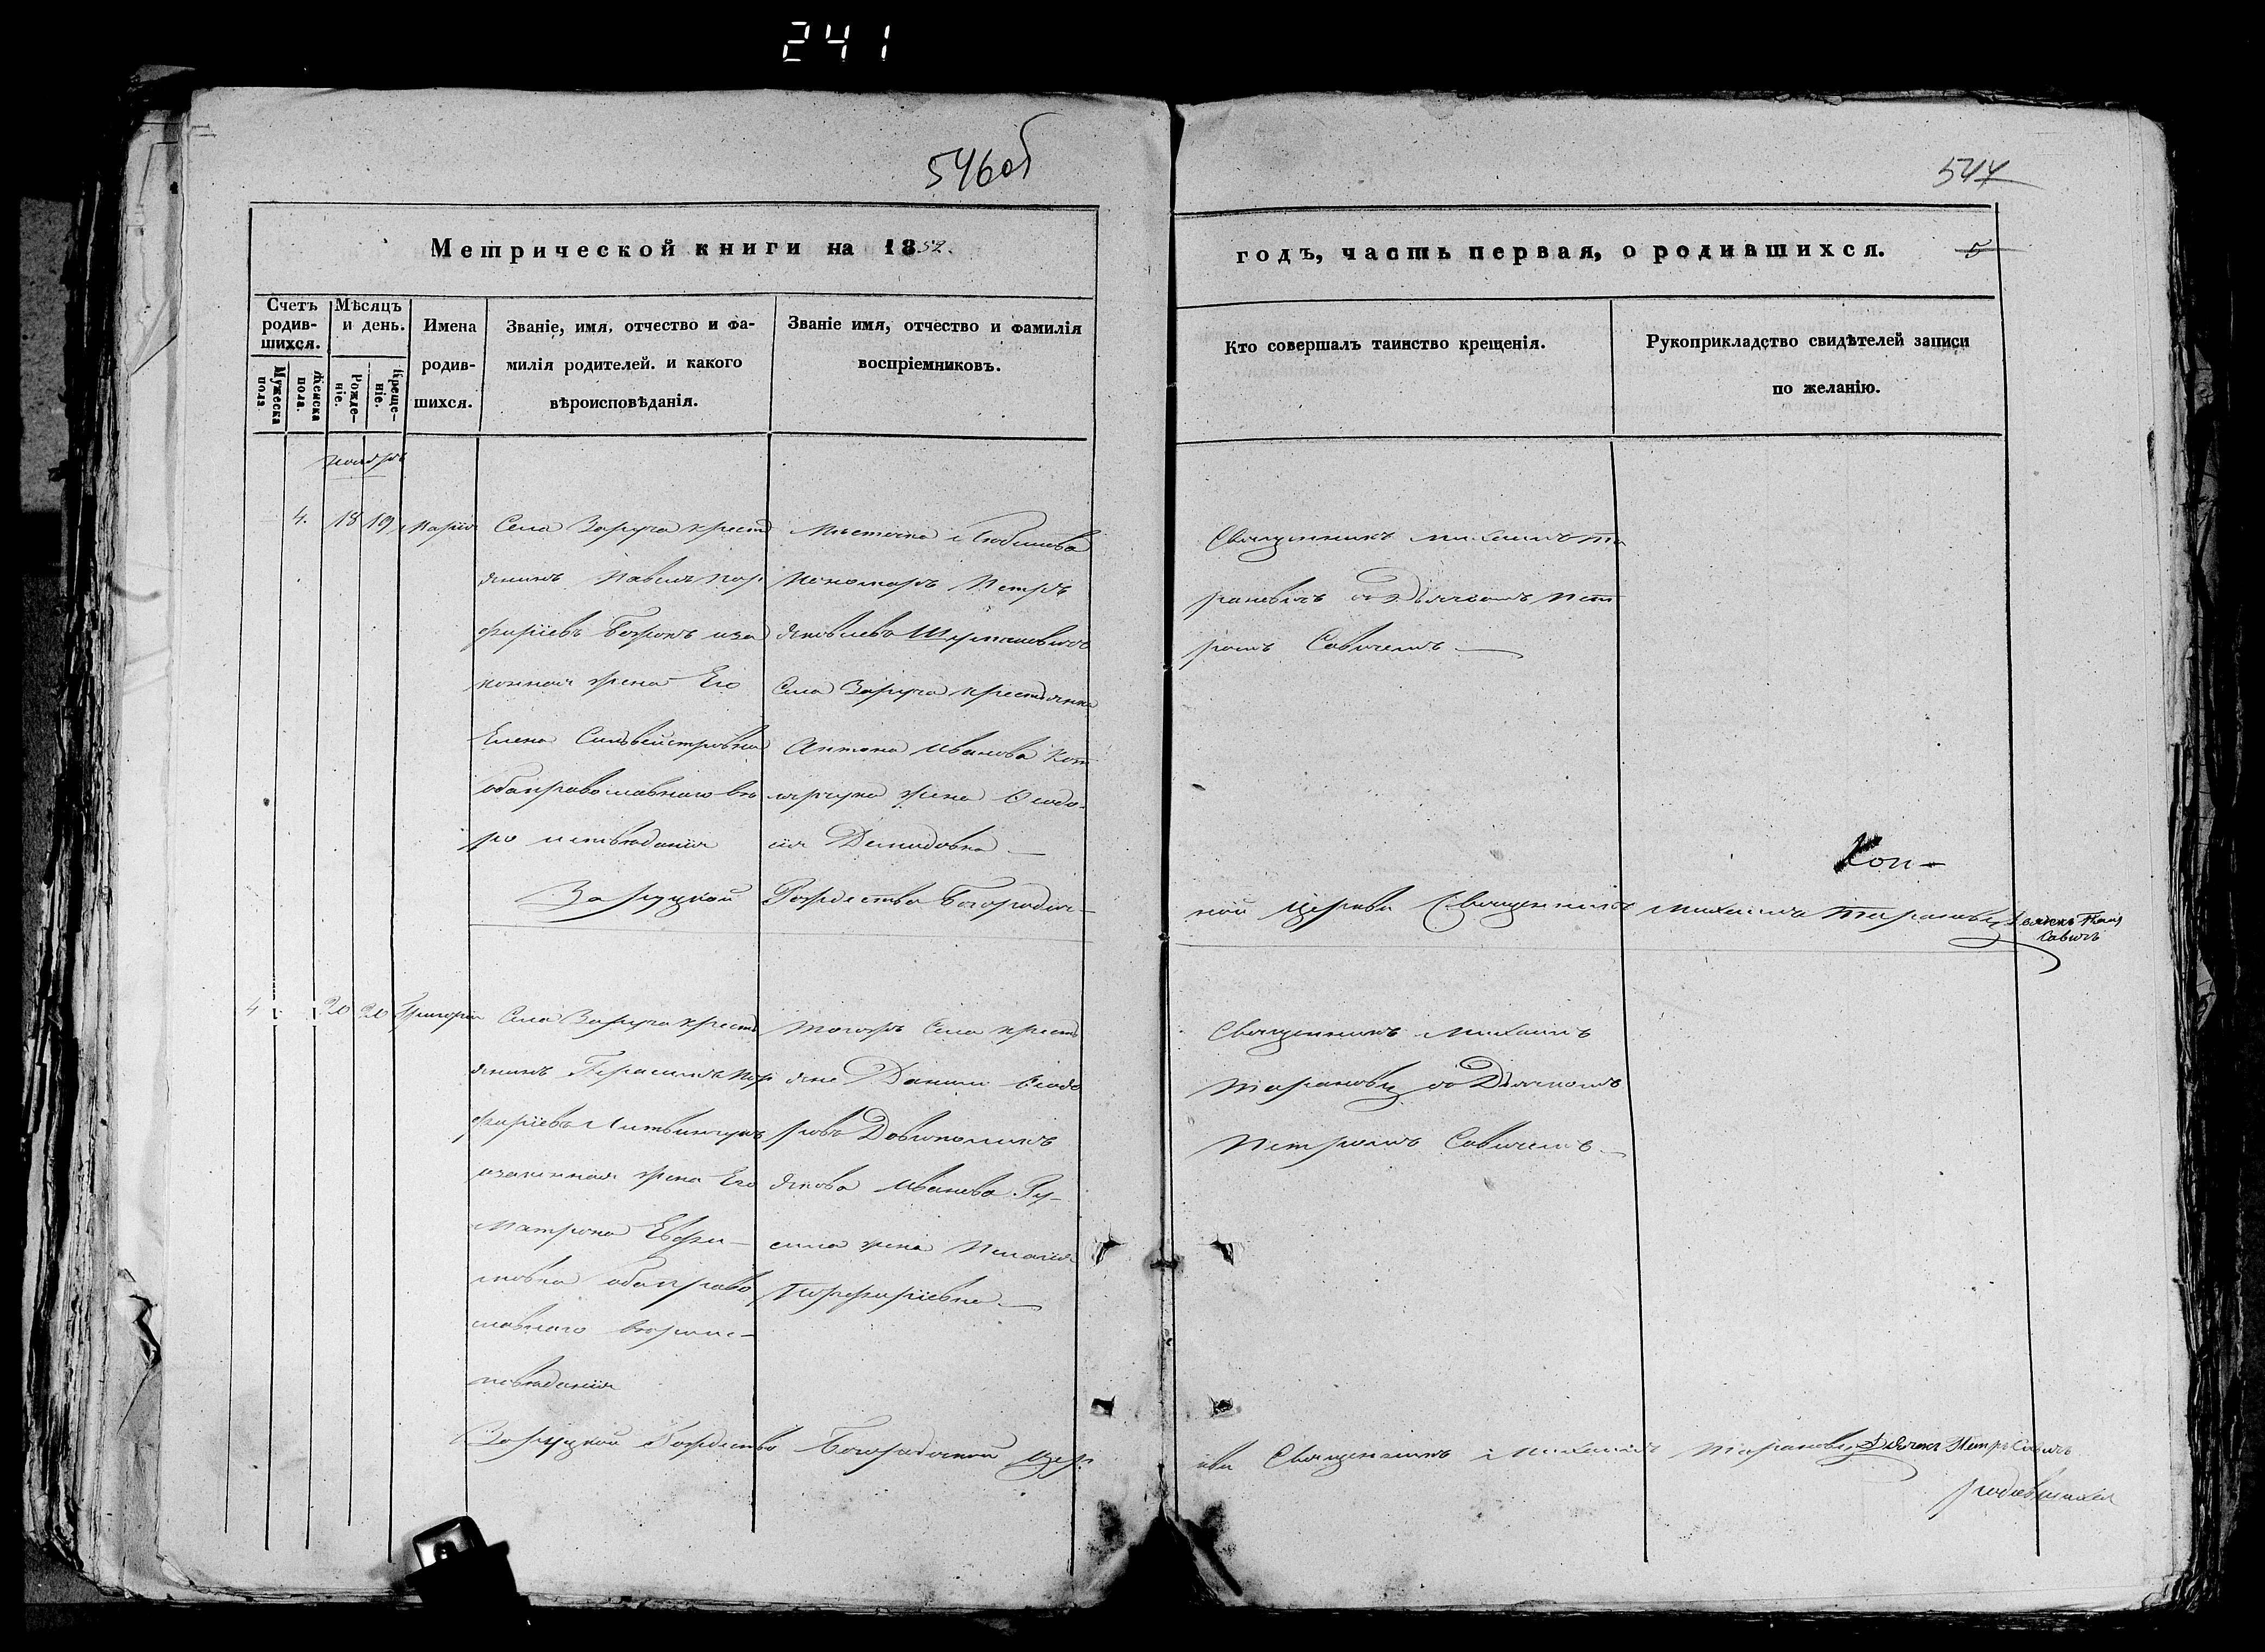 241
546об
547
Метрической книги на 1852.
годъ, часть первая, о родившихся. 5
Счетъ родив-шихся.
Мужеска пола.
Женска пола.
Мѣсяцъ и день.
Рожде-ніе.
Креще-ніе.
Имена
родив-
шихся.
Званіе, имя, отчество и фа-
милія родителей. и какого
вѣроисповѣданія.
Званіе имя, отчество и фамилія
воспріемниковъ.
Кто совершалъ таинство крещенія.
Рукоприкладство свидѣтелей записи
по желанію.
ноябрь
4. 18 19 Марія
Села Заруча крестъ
янинъ Павелъ Пор
фиріевъ иза
конная жена Его
Елена Сильвейстровна
оба православнаго вѣ
ро исповѣданія
Мѣстечка Любишева
Пономарь Петръ
Яковлевъ
Села Заруча крестьянина
Антона Иванова Кот
лярчука жена Ѳеодо-
сія Демидовна
Священникъ Михаилъ Та
рановичъ со Дьячкомъ Пет
ромъ Савичемъ
Заруцкой Рождество Богородич-
ной Церкви Священникъ Михаилъ Тарановичъ
Дьячекъ Петръ
Савичъ
Кон-
4 20 20 Григорій
Села Заруча крестъ
янинъ Герасимъ Пор
фиріевъ Литвинчукъ
изаконная жена Его
Матрона Евфи-
мовна оба право
славнаго вѣроис-
повѣданія
Тогожъ Села крестъ
яне Даніилъ Ѳеодо
ровъ
Якова Иванова
жена Пелагія
Порфиріевна
Священникъ Михаилъ
Тарановичъ со Дьячкомъ
Петромъ Савичемъ
Заруцкой Рождество Богородичной Цер
кви Священникъ Михаилъ Тарановичъ Дьячекъ Петръ Савичъ
родившихся